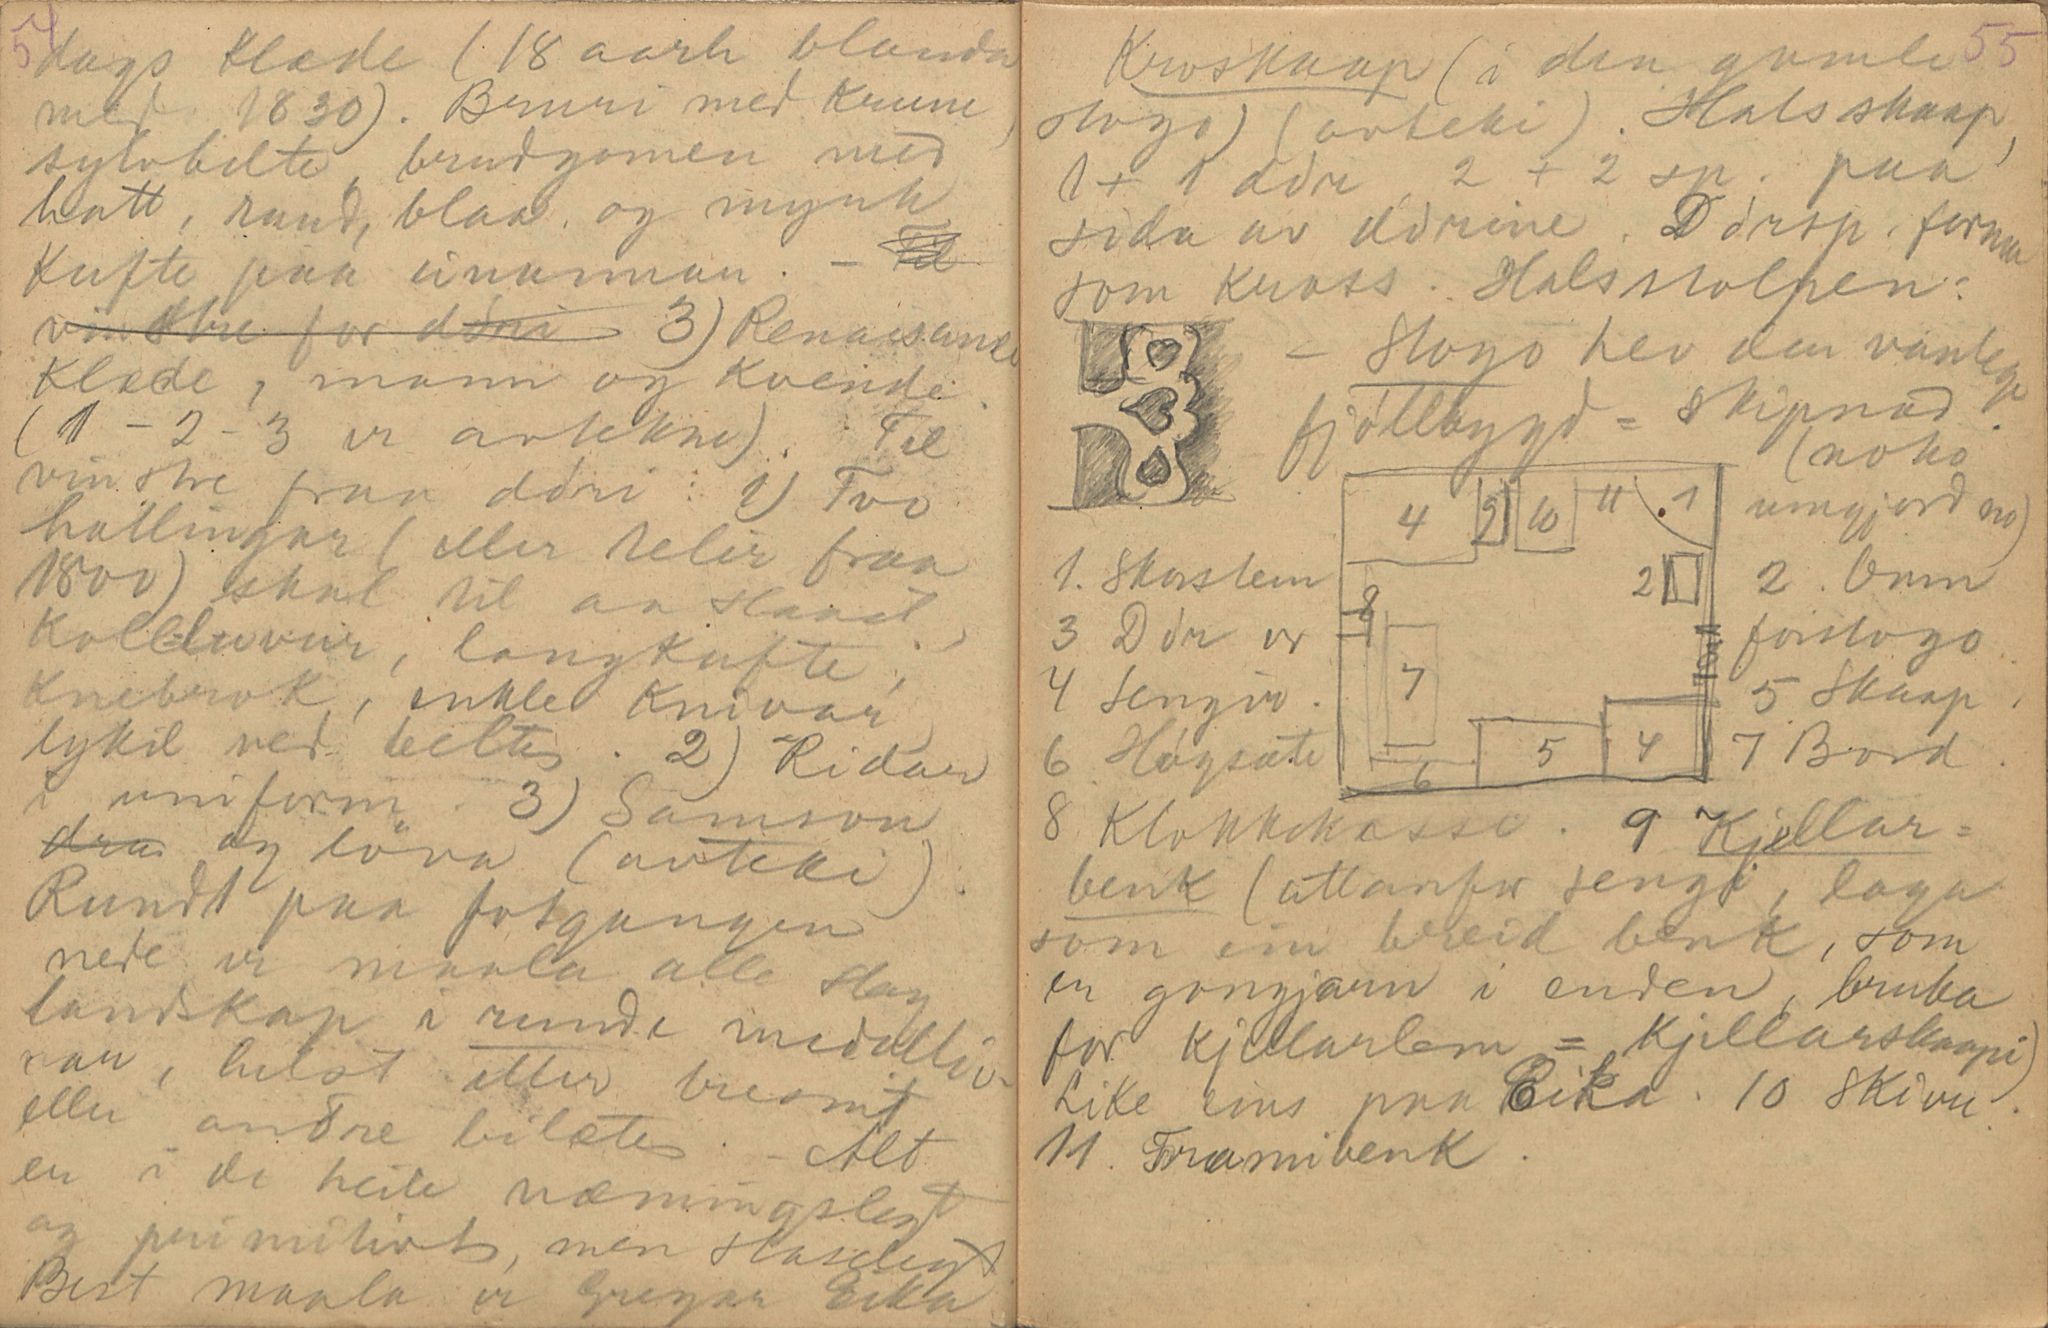 54
dags Klæde (18 aarh blanda
med 1830). Bruri med Krune,
sylvbelte, brudgomen med
hatt, raud, blaa og mynk
Kufte paa einannan. – Til
vinstre for döri 3) Renaissanse
Klæde, mann og Kvende.
(1 – 2 – 3 er avtekne). Til
vinstre fraa döri: 1) Tvo
hallingar (eller telir fraa
1800) skal til aa slaast,
Kolleluvur, langkufte,
Knebrok, enkle Knivar
lykil ved beltes. 2) Ridar
i uniform. 3) Samson
dra og löva (avteki).
Rundt paa fotgangen
nede er maala alle slag
landskap i runde medallio-
nar, helst etter
eller andre bilæte. – Alt
er i de heile næmingslegt
og primitivt, men staselegt
Best maala er Gregar Eika
55
Kroskaap (i den gamle
stogo) (avteki). Halsskaap,
1 + 1 dör, 2 + 2 sp. paa
sida av dörine. Dörsp. forma
som Kross. Halsstolpen:
– Stogo hev den vanlege
fjöllbygd = skipnad.
(noko
umgjord no)
4 9 10 11 1
2
8
3
7
6 5 4
1. Skorstein 2. Omn
3 Dör er forstogo
4 Sengir. 5 Skaap.
6 Högsæte 7 Bord.
8 Klokkekasse. 9 Kjellar=
benk (attanfor sengi, laga
som ein breid benk, som
er gongjarn i enden, bruka
for Kjellarlem = Kjellarskaapi)
Like eins paa Eika. 10 Skive.
11. Framibenk.